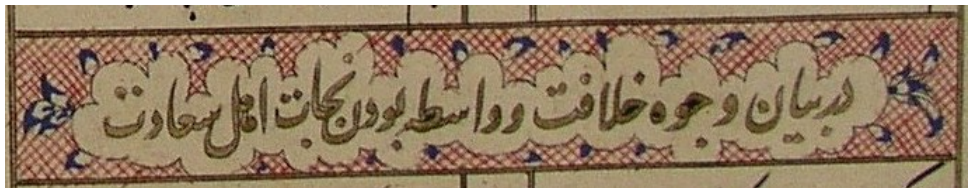 در بیان وجوه خلافت و واسطه بودن نجات اهل سعادت